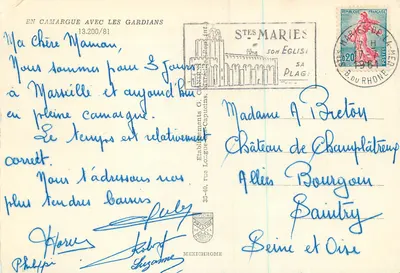 EN CAMARGUE AVEC LES GARDIANS
13.200/81
Ma chère Maman,
Nous sommes pour 3 jours
à Marseille et aujourd'hui
en pleine camargue.
Le temps est relativement
correct.
Nous t'adressons nos
plus tendres baisers
Philippe
Suzanne
STES MARIES
SON EGLISE
SA
PLAGE
B. DU RHONE
1961
0,20
MEXICHROME
Madame A Breton
Château de Champlâtreux
Allées Bourgoin
Saintry
Seine et Oise